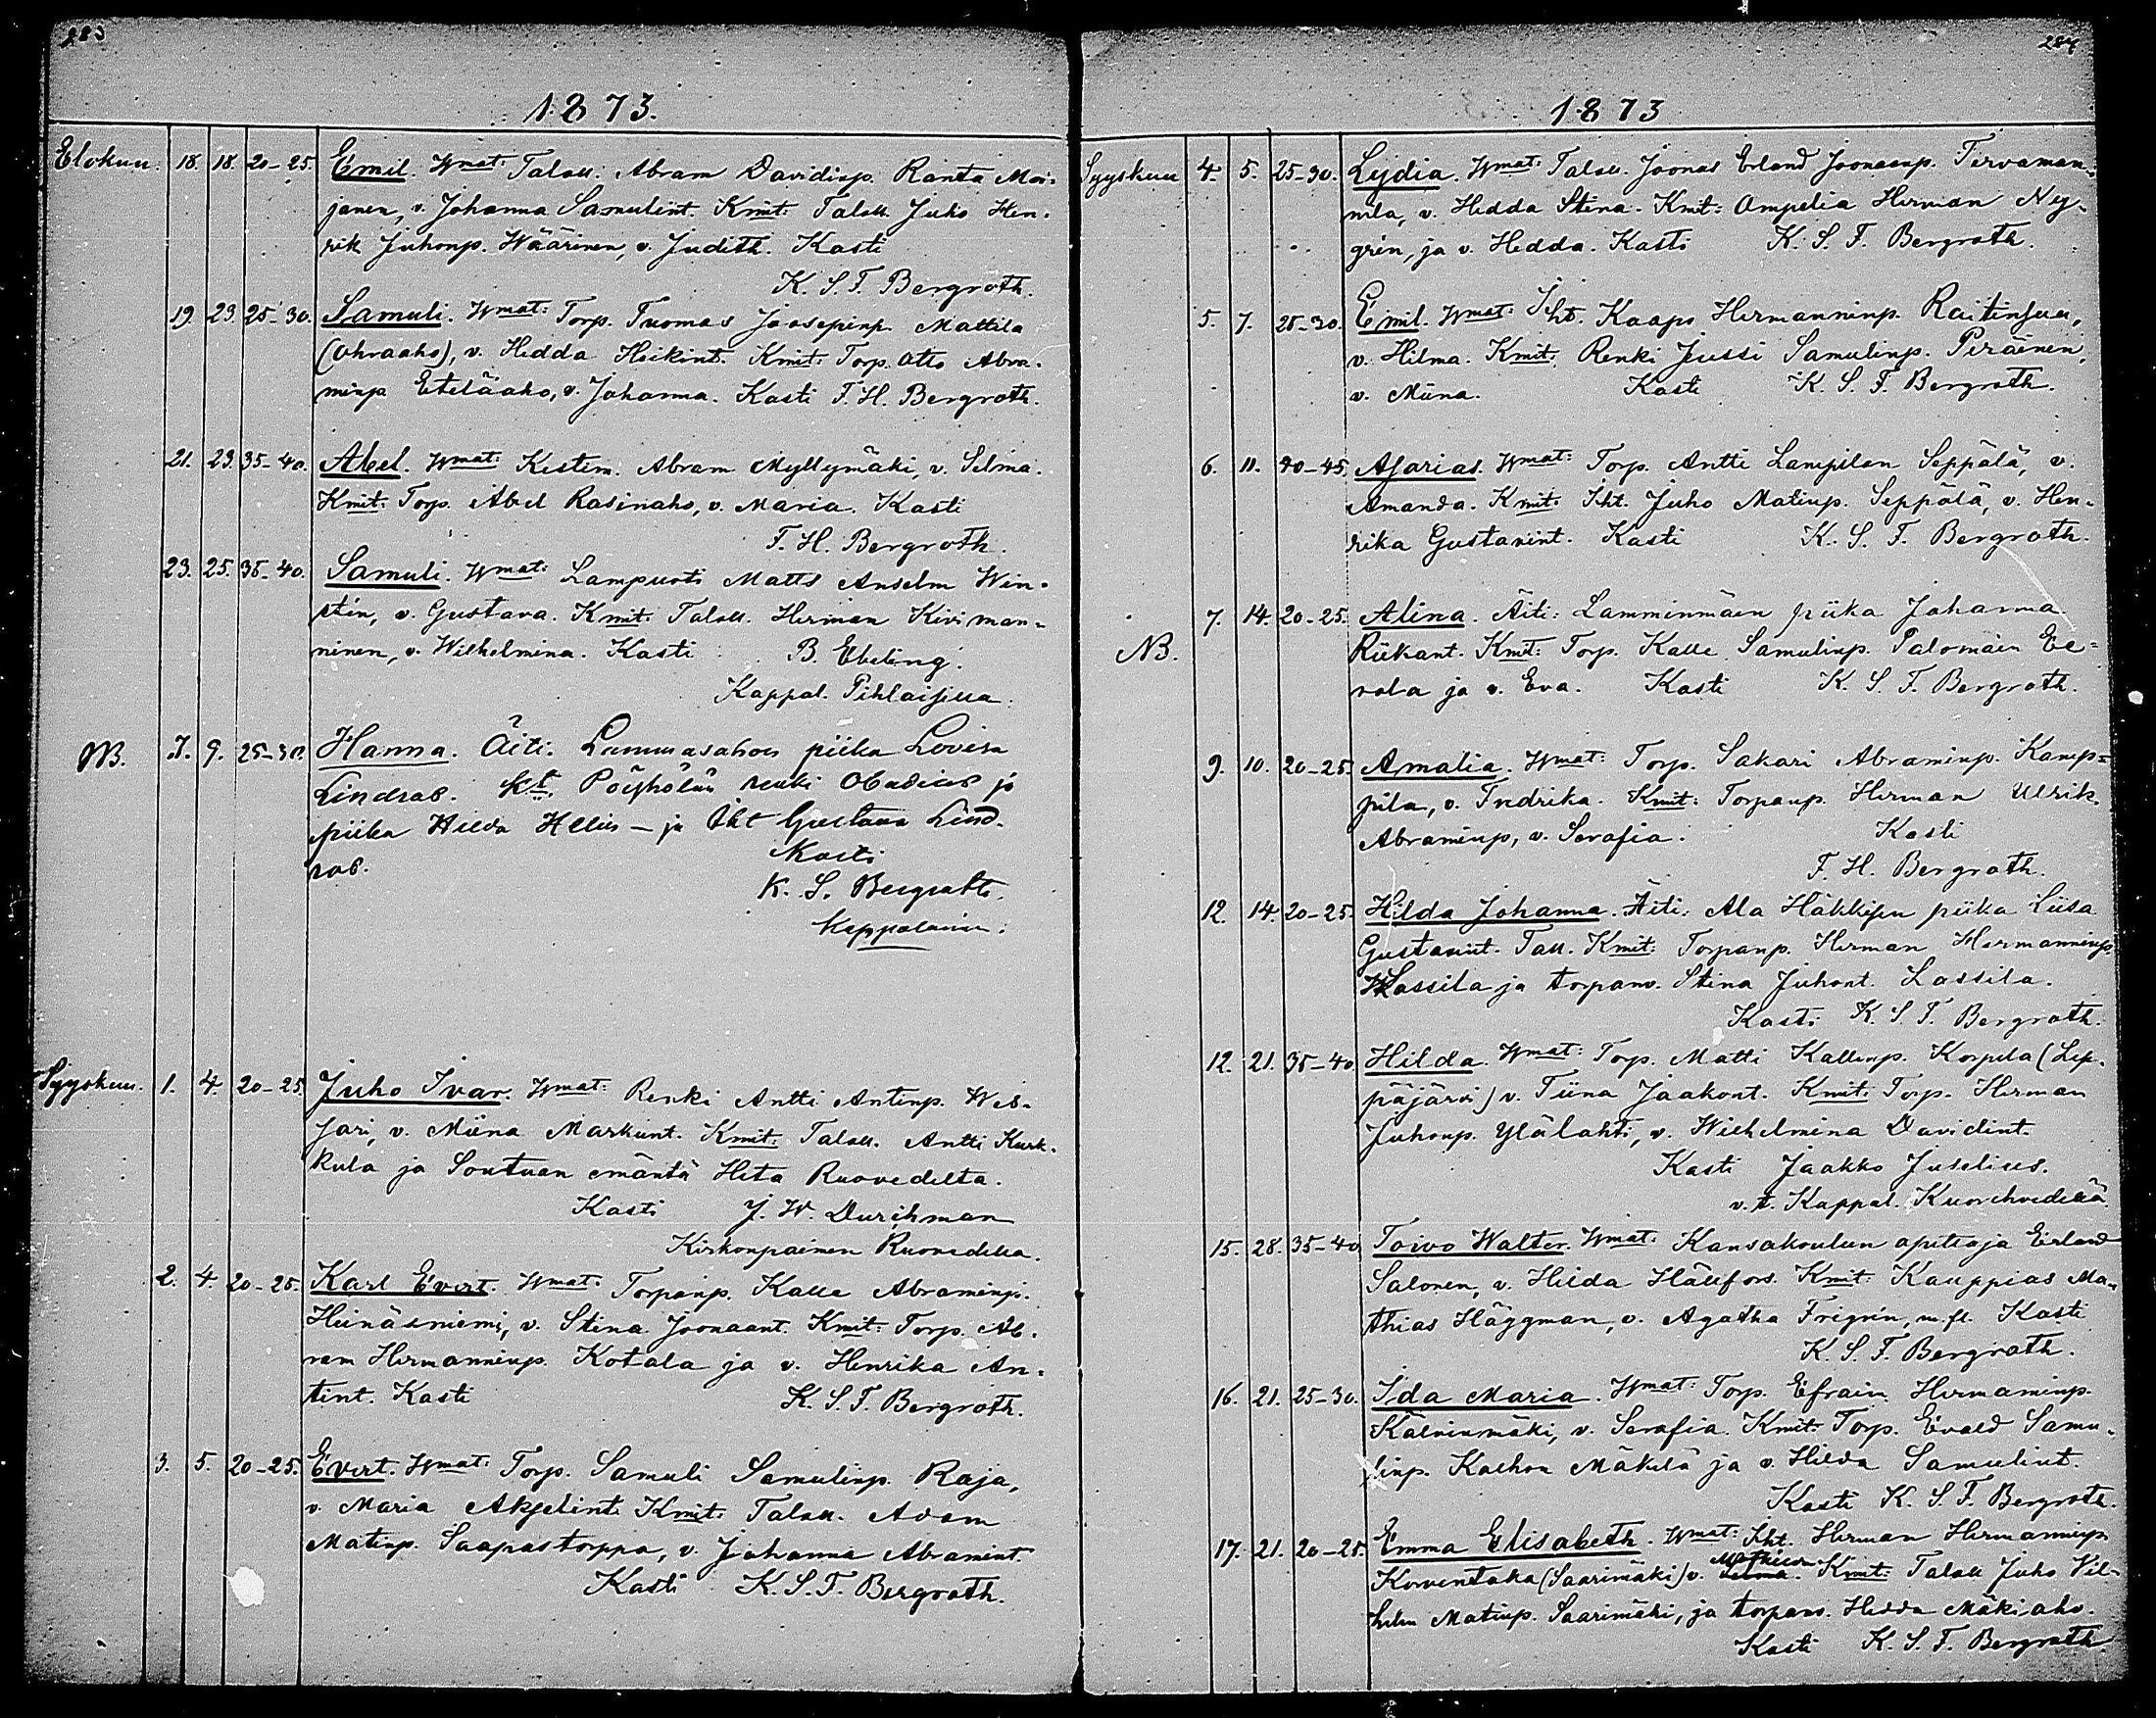 283
1873.
Elokuu. 18. 18. 20-25. Emil. Wmat: Talall. Abram Davidinp. Ranta Mar-
janen, v. Johanna Samulint. Kmit: Talall. Juho Hen-
rik Juhonp. Wäärinen, v. Judith. Kasti
K. S. F. Bergroth.
19. 23. 25-30. Samuli. Wmat: Torp. Tuomas Joosepinp. Mattila
(Ohraaho), v. Hedda Heikint. Kmit: Torp. Otto Abra-
minp. Eteläaho, v. Johanna. Kasti F. H. Bergroth.
21. 23. 35-40. Abel. Wmat: Kestim. Abram Myllymäki, v. Selma.
Kmit: Torp. Abel Rasinaho, v. Maria. Kasti
F. H. Bergroth.
23. 25. 35-40. Samuli. Wmat: Lampuoti Matts Anselm Win-
stén, v. Gustava. Kmit: Talall. Herman Kiviman-
ninen, v. Wilhelmina. Kasti B. Ebeling.
Kappal. Pihlaisjua.
NB. 7. 9. 25-30. Hanna. Äiti: Lammasahon piika Lovisa
Lindras. Kt. Pöyhölän renki Obadias ja
piika Hilda Helin - ja Iht Gustava Lind-
ras. Kasti
K. S. Bergroth.
Kappalainen.
Syyskuu. 1. 4. 20-25. Juho Ivar. Wmat: Renki Antti Antinp. Wes-
jari, v. Miina Markunt. Kmit: Talall. Antti Kurk-
kula ja Sontuan emäntä Heta Ruovedelta.
Kasti J. W. Durchman
Kirkonpaimen Ruovedellä.
2. 4. 20-25. Karl Evert. Wmat: Torpanp. Kalle Abraminp.
Heinäsniemi, v. Stina Joonaant. Kmit: Torp. Ab-
ram Hermanninp. Kotala ja v. Henrika An-
tint. Kasti K. S. F. Bergroth.
3. 5. 20-25. Evert. Wmat: Torp. Samuli Samulinp. Raja,
v. Maria Akselint. Kmit: Talall. Adam
Matinp. Saapastorppa, v. Johanna Abramint.
Kasti K. S. F. Bergroth.
284
1873
Syyskuu 4. 5. 25-30. Lydia. Wmat: Talall. Joonas Erland Joonaanp. Tervaman-
nila, v. Hedda Stina. Kmit: Ompelia Herman Ny-
grén, ja v. Hedda. Kasti K. S. F. Bergroth.
5. 7. 25-30. Emil. Wmat: Iht. Kaapo Hermanninp. Raitinsuu,
v. Hilma. Kmit: Renki Jussi Samulinp. Peräinen,
v. Miina. Kasti K. S. F. Bergroth.
6. 11. 40-45. Asarias. Wmat: Torp. Antti Lampilan Seppälä, v.
Amanda. Kmit: Iht. Juho Matinp. Seppälä, v. Hen-
rika Gustavint. Kasti K. S. F. Bergroth.
NB. 7. 14. 20-25. Alina. Äiti: Lamminmäen piika Johanna
Riikant. Kmit: Torp. Kalle Samulinp. Palomäen Ee-
rola ja v. Eva. Kasti K. S. F. Bergroth.
9. 10. 20-25. Amalia. Wmat: Torp. Sakari Abraminp. Kamp-
pila, v. Fredrika. Kmit: Torpanp. Herman Ulrik
Abraminp, v. Serafia. Kasti
F. H. Bergroth.
12. 14. 20-25. Hilda Johanna. Äiti: Ala Häkkisen piika Liisa
Gustavint. Tall. Kmit: Torpanp. Herman Hermanninp.
Lassila ja torpanv. Stina Juhont. Lassila.
Kasti K. S. F. Bergroth.
12. 21. 35-40 Hilda. Wmat: Torp. Matti Kallenp. Korpela (Lep-
päjärvi) v. Tiina Jaakont. Kmit: Torp. Herman
Juhonp. Ylälahti, v. Wilhelmina Davidint.
Kasti Jaakko Juselius.
v.t. Kappal. Kuorehvedellä.
15. 28. 35-40 Toivo Walter. Wmat: Kansakoulun opettaja Erland
Salonen, v. Hilda Hällfors. Kmit: Kauppias Ma-
thias Häggman, v. Agatha Frigrén, m.fl. Kasti
K. S. F. Bergroth.
16. 21. 25-30. Ida Maria. Wmat: Torp. Efraim Hermaninp.
Kälvinmäki, v. Serafia. Kmit: Torp. Evald Samu-
linp. Kaehon Mäkelä ja v. Hilda Samulint.
Kasti K. S. F. Bergroth.
17. 21. 20-25. Emma Elisabeth. Wmat: Iht. Herman Hermanninp.
Korventaka (Saarimäki) v. Selma. Kmit: Talall Juho Vil-
helm Matinp. Saarimäki, ja torpanv. Hedda Mäkiaho.
Kasti K. S. F. Bergroth